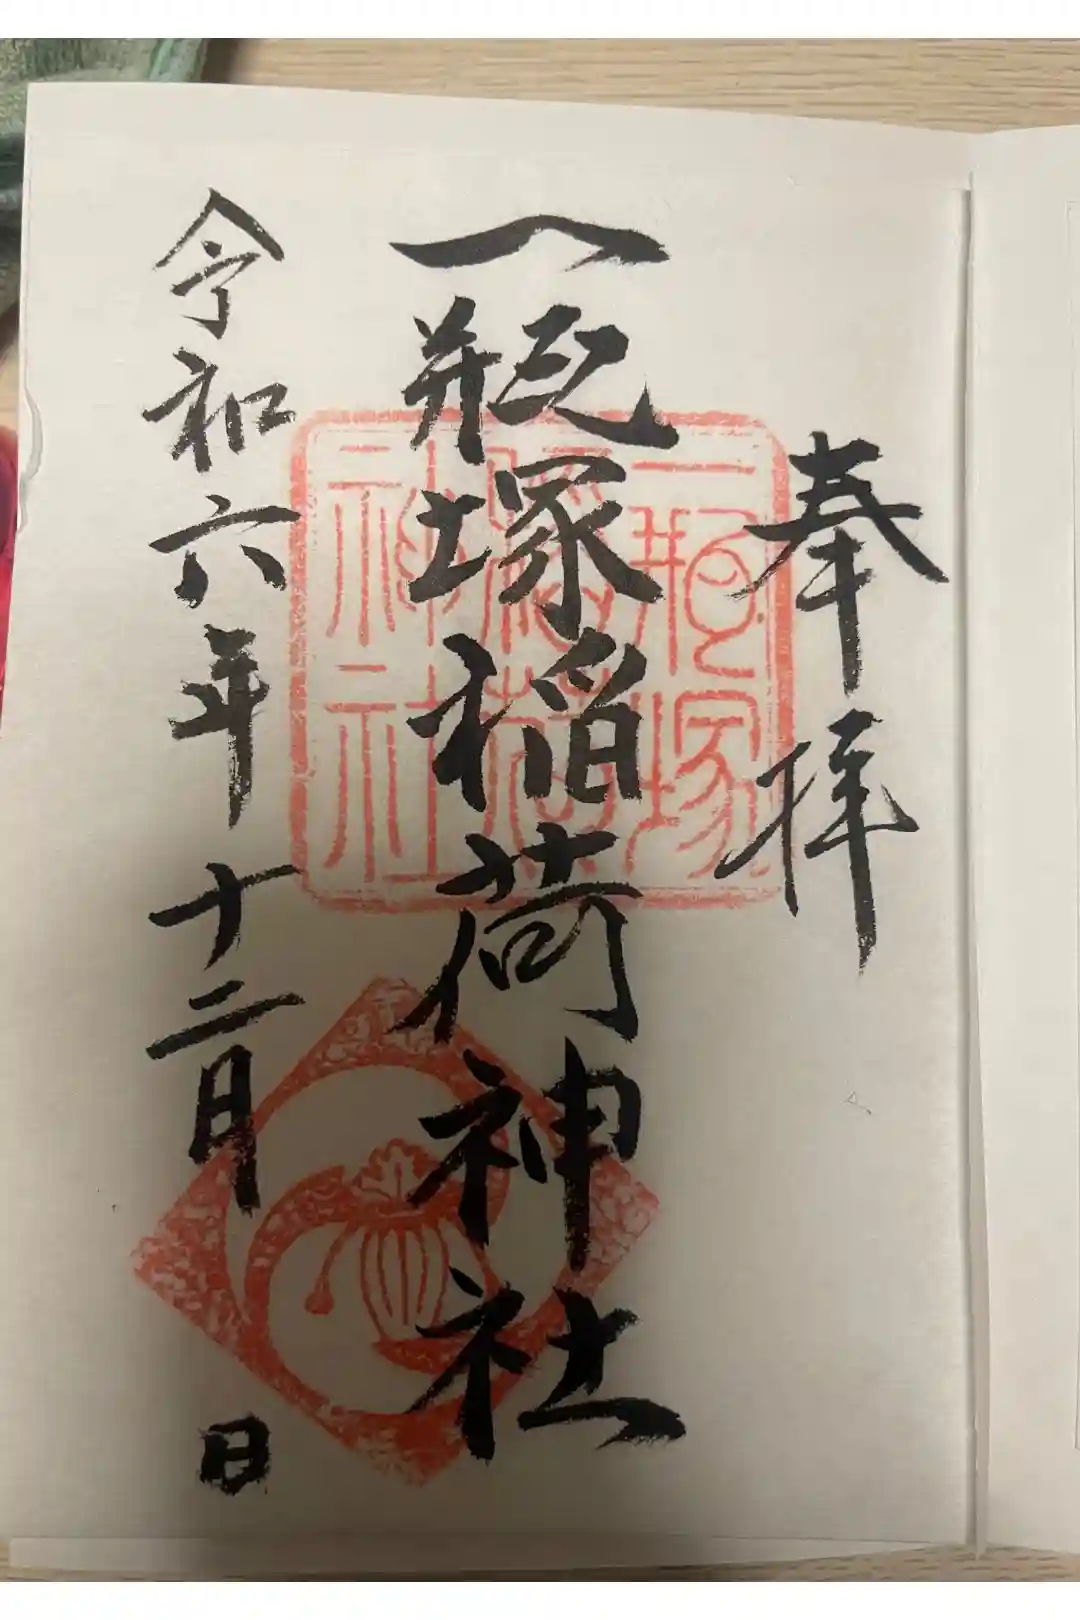 奉拝
一瓶塚稲荷神社
一瓶塚
稲荷
神社
令和六年十二月 日